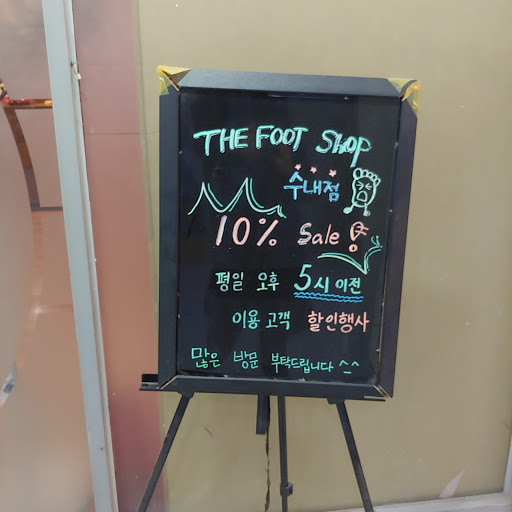 THE FOOT SHOP
수내점
10% Sale
평일 오후 5시 이전
이용 고객 할인행사
많은 방문 부탁드립니다 ^_^